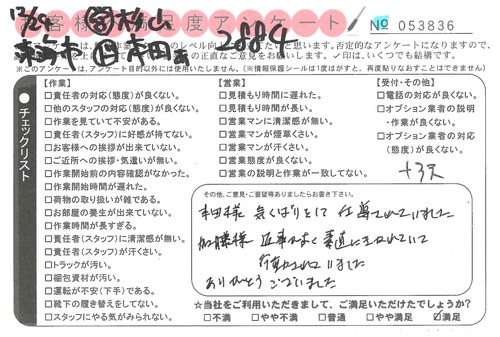 12/29 杉山
お客様満足度アンケート
№ 053836
2884
本田
のレベル向上
と思います。否定的なアンケートになりますので、
の正直なご意見をお聞かせ下さい。✓印は、いくつでも結構です。
※このアンケートは、アンケート目的以外には使用いたしません。(※情報保護シールは1度はがすと、再度貼りなおすことはできません)
チェックリスト
【作業】
□責任者の対応(態度)が良くない。
□他のスタッフの対応(態度)が良くない。
□作業を見ていて不安がある。
□責任者(スタッフ)に好感が持てない。
□お客様への挨拶が出来ていない。
□ご近所への挨拶・気遣いが無い。
□作業開始前の内容確認がなかった。
□作業開始時間が遅れた。
□荷物の取り扱いが雑である。
□お部屋の養生が出来ていない。
□作業時間が長すぎる。
□責任者(スタッフ)に清潔感が無い。
□責任者(スタッフ)が汗くさい。
□トラックが汚い。
□梱包資材が汚い。
□運転が不安(下手)である。
□靴下の履き替えをしてない。
□スタッフにやる気がみられない。
【営業】
□見積もり時間に遅れた。
□見積もり時間が長い。
□営業マンに清潔感が無い。
□営業マンが煙草くさい。
□営業マンが汗くさい。
□営業態度が良くない。
□営業の説明と作業が一致してない。
【受付・その他】
□電話の対応が良くない。
□オプション業者の説明
・作業が良くない。
□オプション業者の対応
(態度)が良くない。
+3天
その他、ご意見・ご要望等ありましたらお書き下さい。
本田様 気くばりをして 仕事されていました
加藤様 返事がよく 素直に
行動されていました
ありがとうございました
☆当社をご利用いただきまして、ご満足いただけたでしょうか?
□不満 □やや不満 □普通 □やや満足 ☑満足